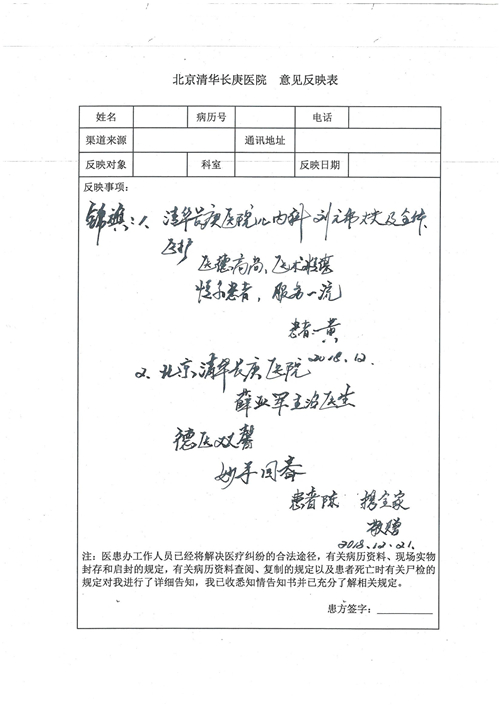 北京清华长庚医院 意见反映表
姓名 病历号 电话
渠道来源 通讯地址
反映对象 科室 反映日期
反映事项：
锦旗：1、清华长庚医院 内科 刘 大夫及全体
医护
医德高尚、医术精湛
情系患者，服务一流
患者：黄
2018.12.
2、北京清华长庚医院
薛亚军主治医生
德医双馨
妙手回春
患者陈 携全家
敬赠
2018.12.21.
注：医患办工作人员已经将解决医疗纠纷的合法途径，有关病历资料、现场实物
封存和启封的规定，有关病历资料查阅、复制的规定以及患者死亡时有关尸检的
规定对我进行了详细告知，我已收悉知情告知书并已充分了解相关规定。
患方签字：